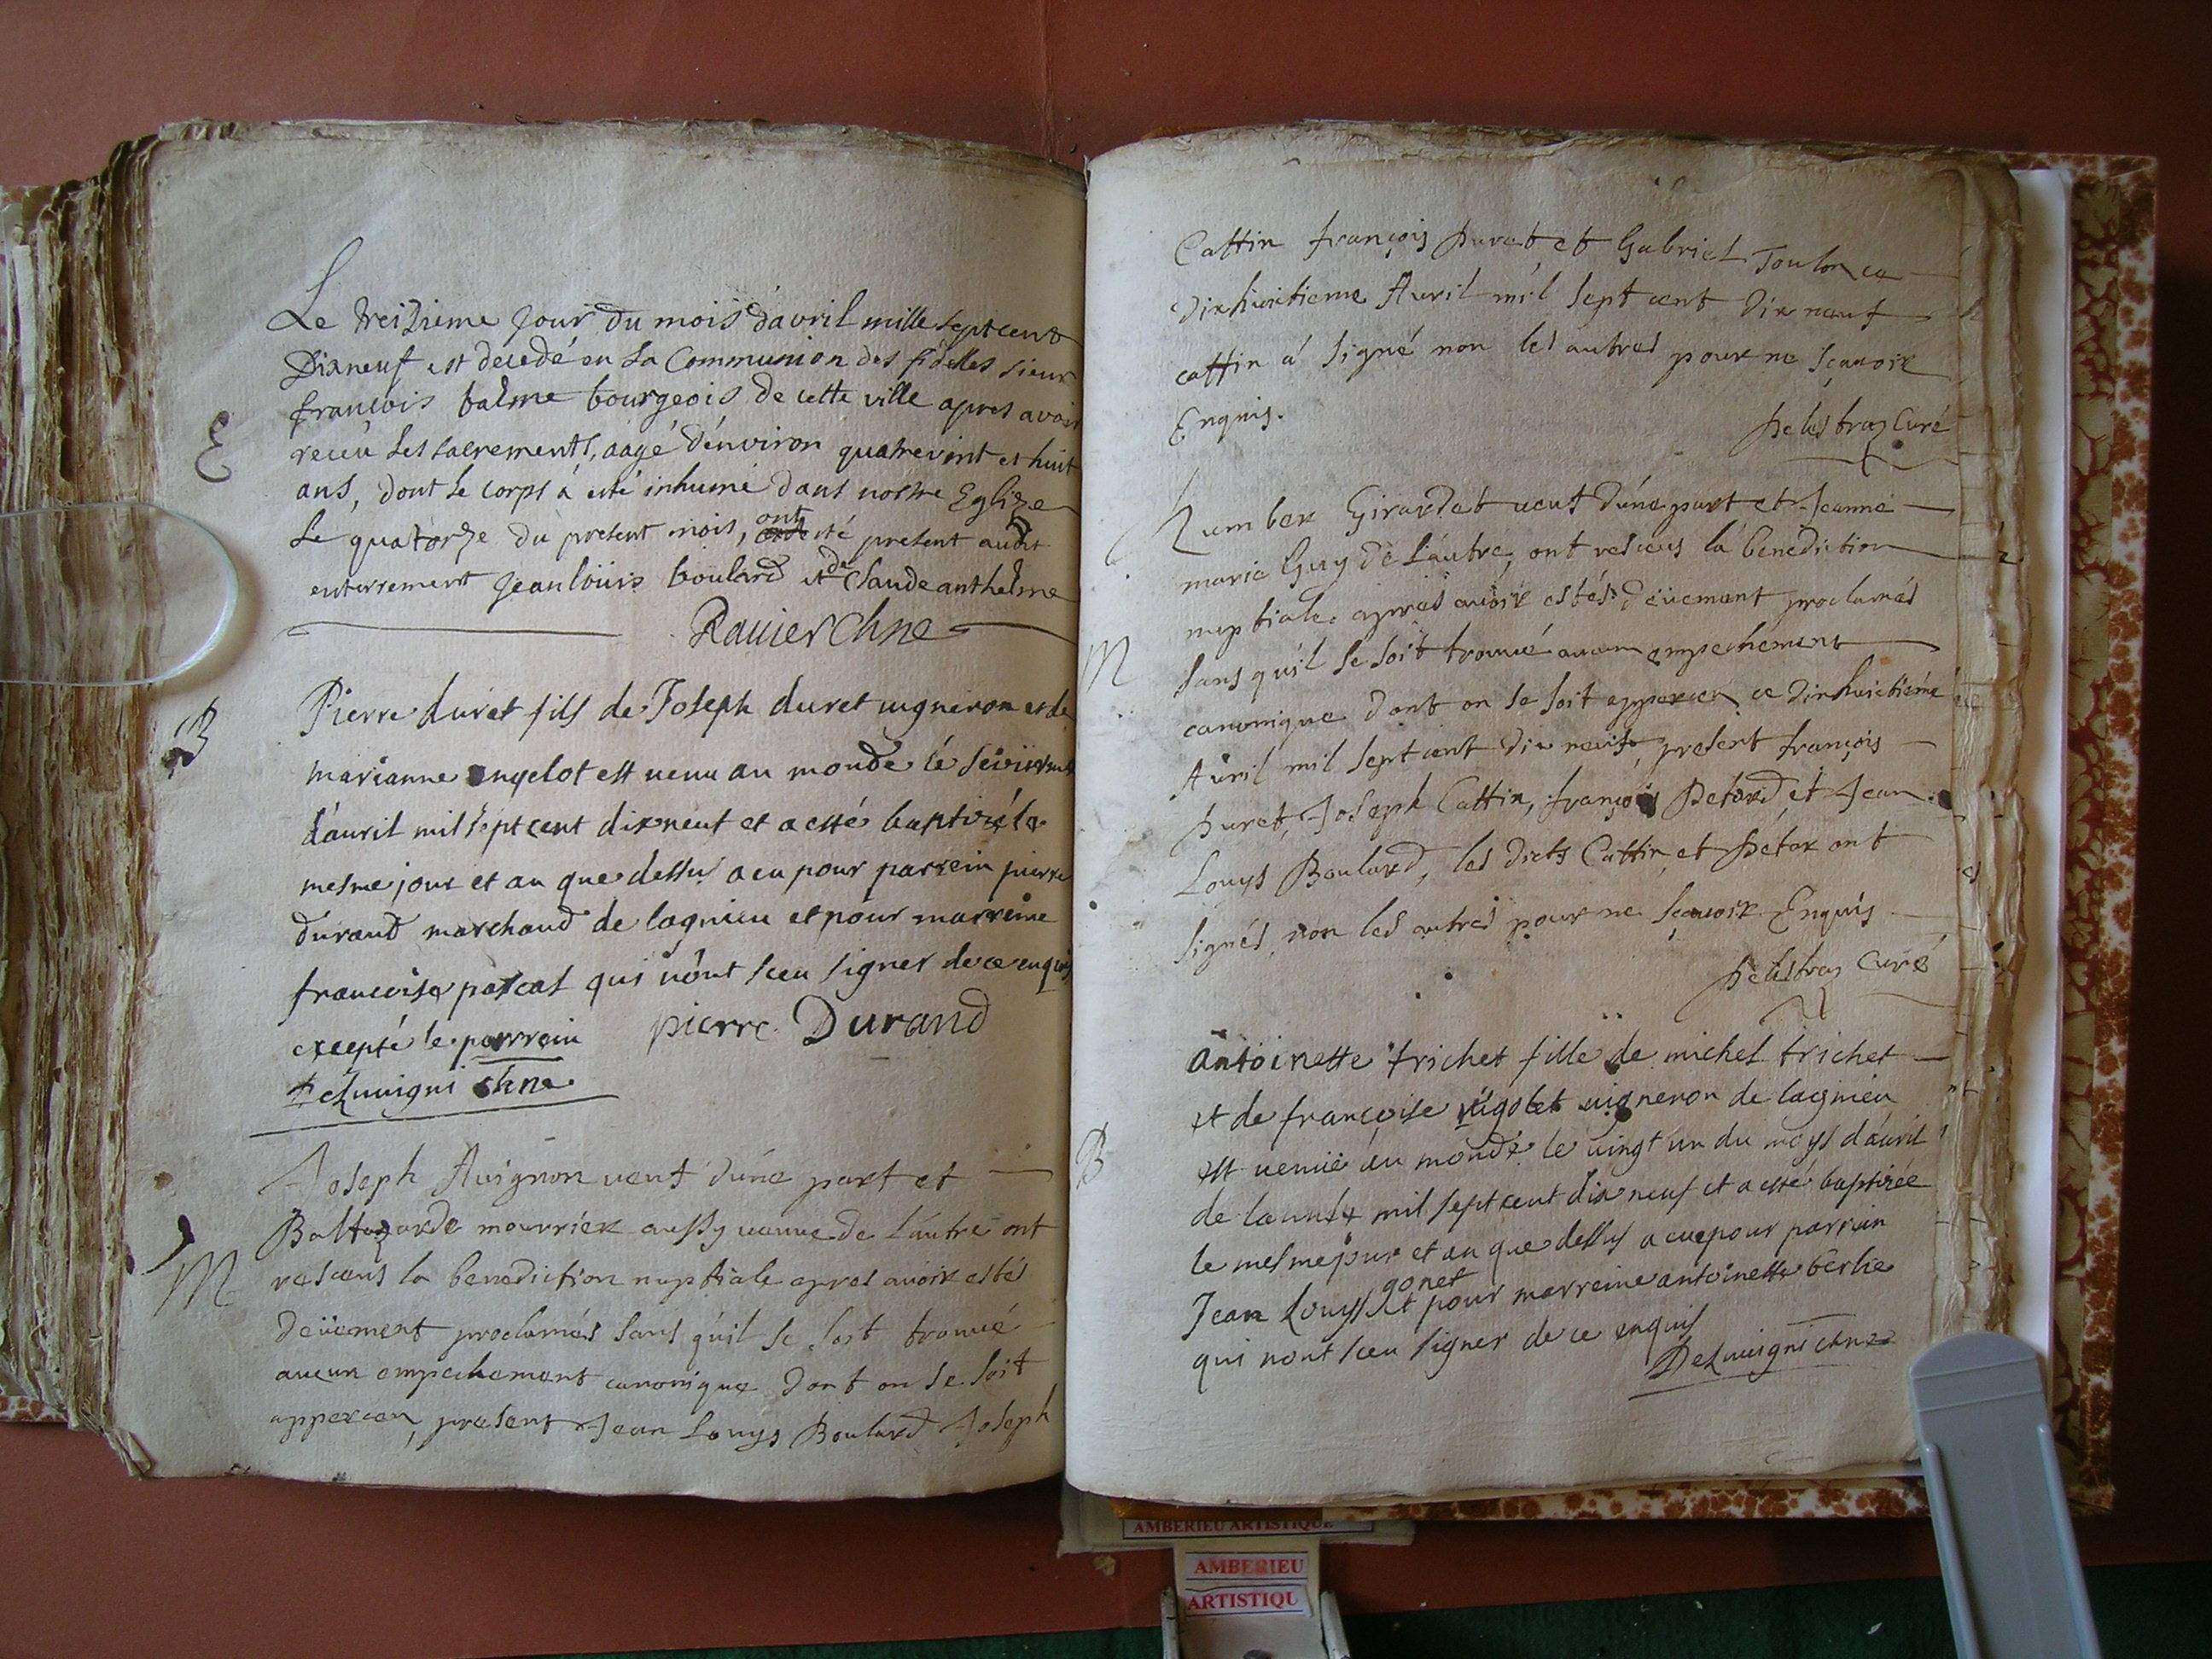 Le treizieme jour du mois d'avril mille sept cent
Dixneuf est decedé en la Communion des fidelles sieur
francois balme bourgeois de cette ville apres avoir
E
receu les sacrements, aagé d'environ quatrevint et huit
ans, dont le corps à esté inhumé dans nostre Eglize
le quatorze du present mois, ont esté present audit
enterrement Jean loüis boulard et de Claude anthelme
Ravier Chne
B
Pierre duret fils de Joseph duret vigneron et de
marianne angelot est venu au monde le
d'auril mil sept cent dix neuf et a esté baptizé le
mesme jour et an que dessus a eu pour parrein pierre
durand marchand de lagnieu et pour marreine
francoise pascal qui n'ont sceu signer de ce enquis
excepté le parrein pierre Durand
Chne
Joseph Avignon veuf d'une part et
Baltazarde mourrier aussy veuve de l'autre ont
M
resceus la benediction nuptiale apres avoir estés
deüement proclamés sans qu'il se soit trouué
aucun empechement canonique dont on se soit
apperceu, present Jean Louys Boulard Joseph
Cattin françois Duret et Gabriel Toulon ce
dixhuictieme Auril mil sept cent dix neuf
cattin a signé non les autres pour ne sçauoir
Enquis.
Delestraz Curé
Humber Girardet veuf d'une part et Jeanne
marie Guy de l'autre, ont resceus la benediction
nuptiale apres avoir estés deüement proclamés
M
sans qu'il se soit trouué aucun empechement
canonique dont on se soit apperceu ce dixhuictieme
Auril mil sept cent dix neuf, present françois
Duret, Joseph Cattin, françois Detard et Jean
Louys Boulard, les dicts Cattin et Détar ont
signés non les autres pour ne sçauoir Enquis
Delestraz Curé
antoinette trichet fille de michel trichet
et de françoise rigolet vigneron de lagnieu
B
est venue au monde le vingt un du moys d'auril
de mil sept cent dix neuf et a esté baptizée
le mesme jour et an que dessus a eue pour parrain
gonet
Jean Louys et pour marreine antoinette berlie
qui n'ont sceu signer de ce enquis
chne
AMBERIEU ARTISTIQUE
AMBERIEU
ARTISTIQU